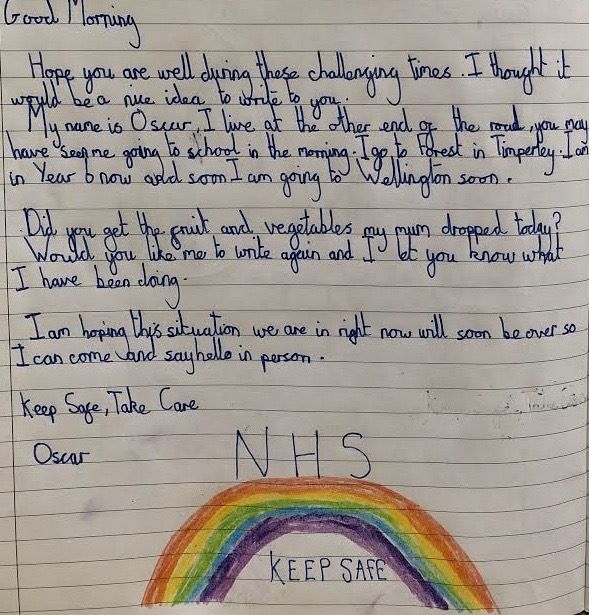 Good Morning
Hope you are well during these challenging times. I thought it
would be a nice idea to write to you.
My name is Oscar, I live at the other end of the road, you may
have seen me going to school in the morning. I go to Forest in Timperley. I am
in Year 6 now and soon I am going to Wellington soon.
Did you get the fruit and vegetables my mum dropped today?
Would you like me to write again and I let you know what
I have been doing.
I am hoping this situation we are in right now will soon be over so
I can come and say hello in person.
Keep Safe, Take Care
Oscar
NHS
KEEP SAFE